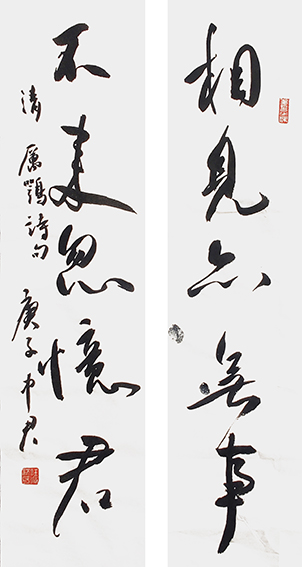 相見亦無事
不來忽憶君
清 厲鶚詩句 庚子中君